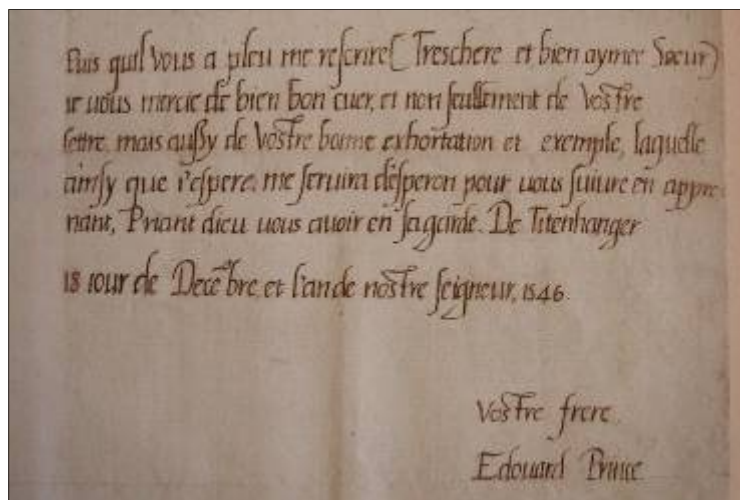 Puis quil vous a pleu me rescrire (Treschere et bien aymee Sœur)
ie vous mercie de bien bon cuer, et non seullement de Vostre
lettre, mais aussy de Vostre bonne exhortation et exemple, laquelle
ainsy que i'espere, me seruira d'esperon pour uous suiure en appre-
nant, Priant dieu uous auoir en sa garde. De Titenhanger
18 iour de Decēbre, et l'an de nostre seigneur, 1546.
Vostre frere
Edouard Prince